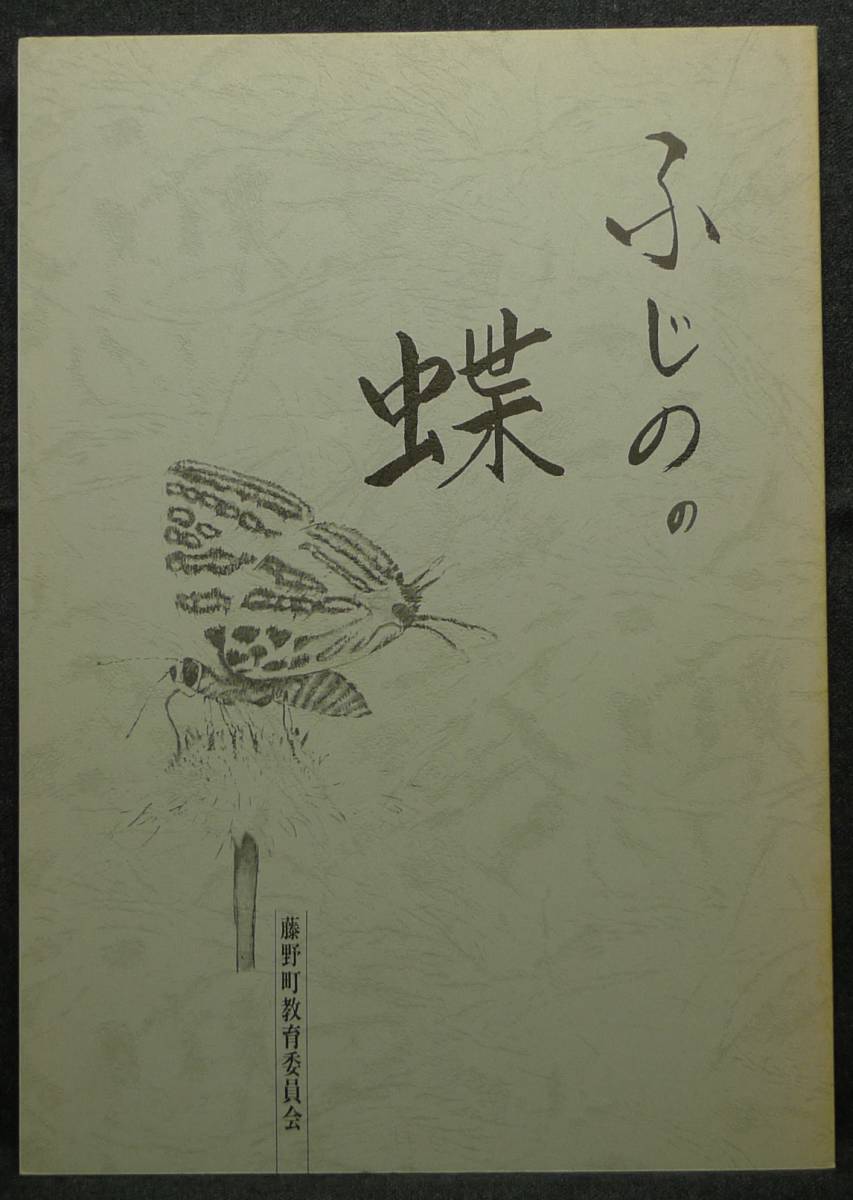 ふじのの
蝶
藤野町教育委員会